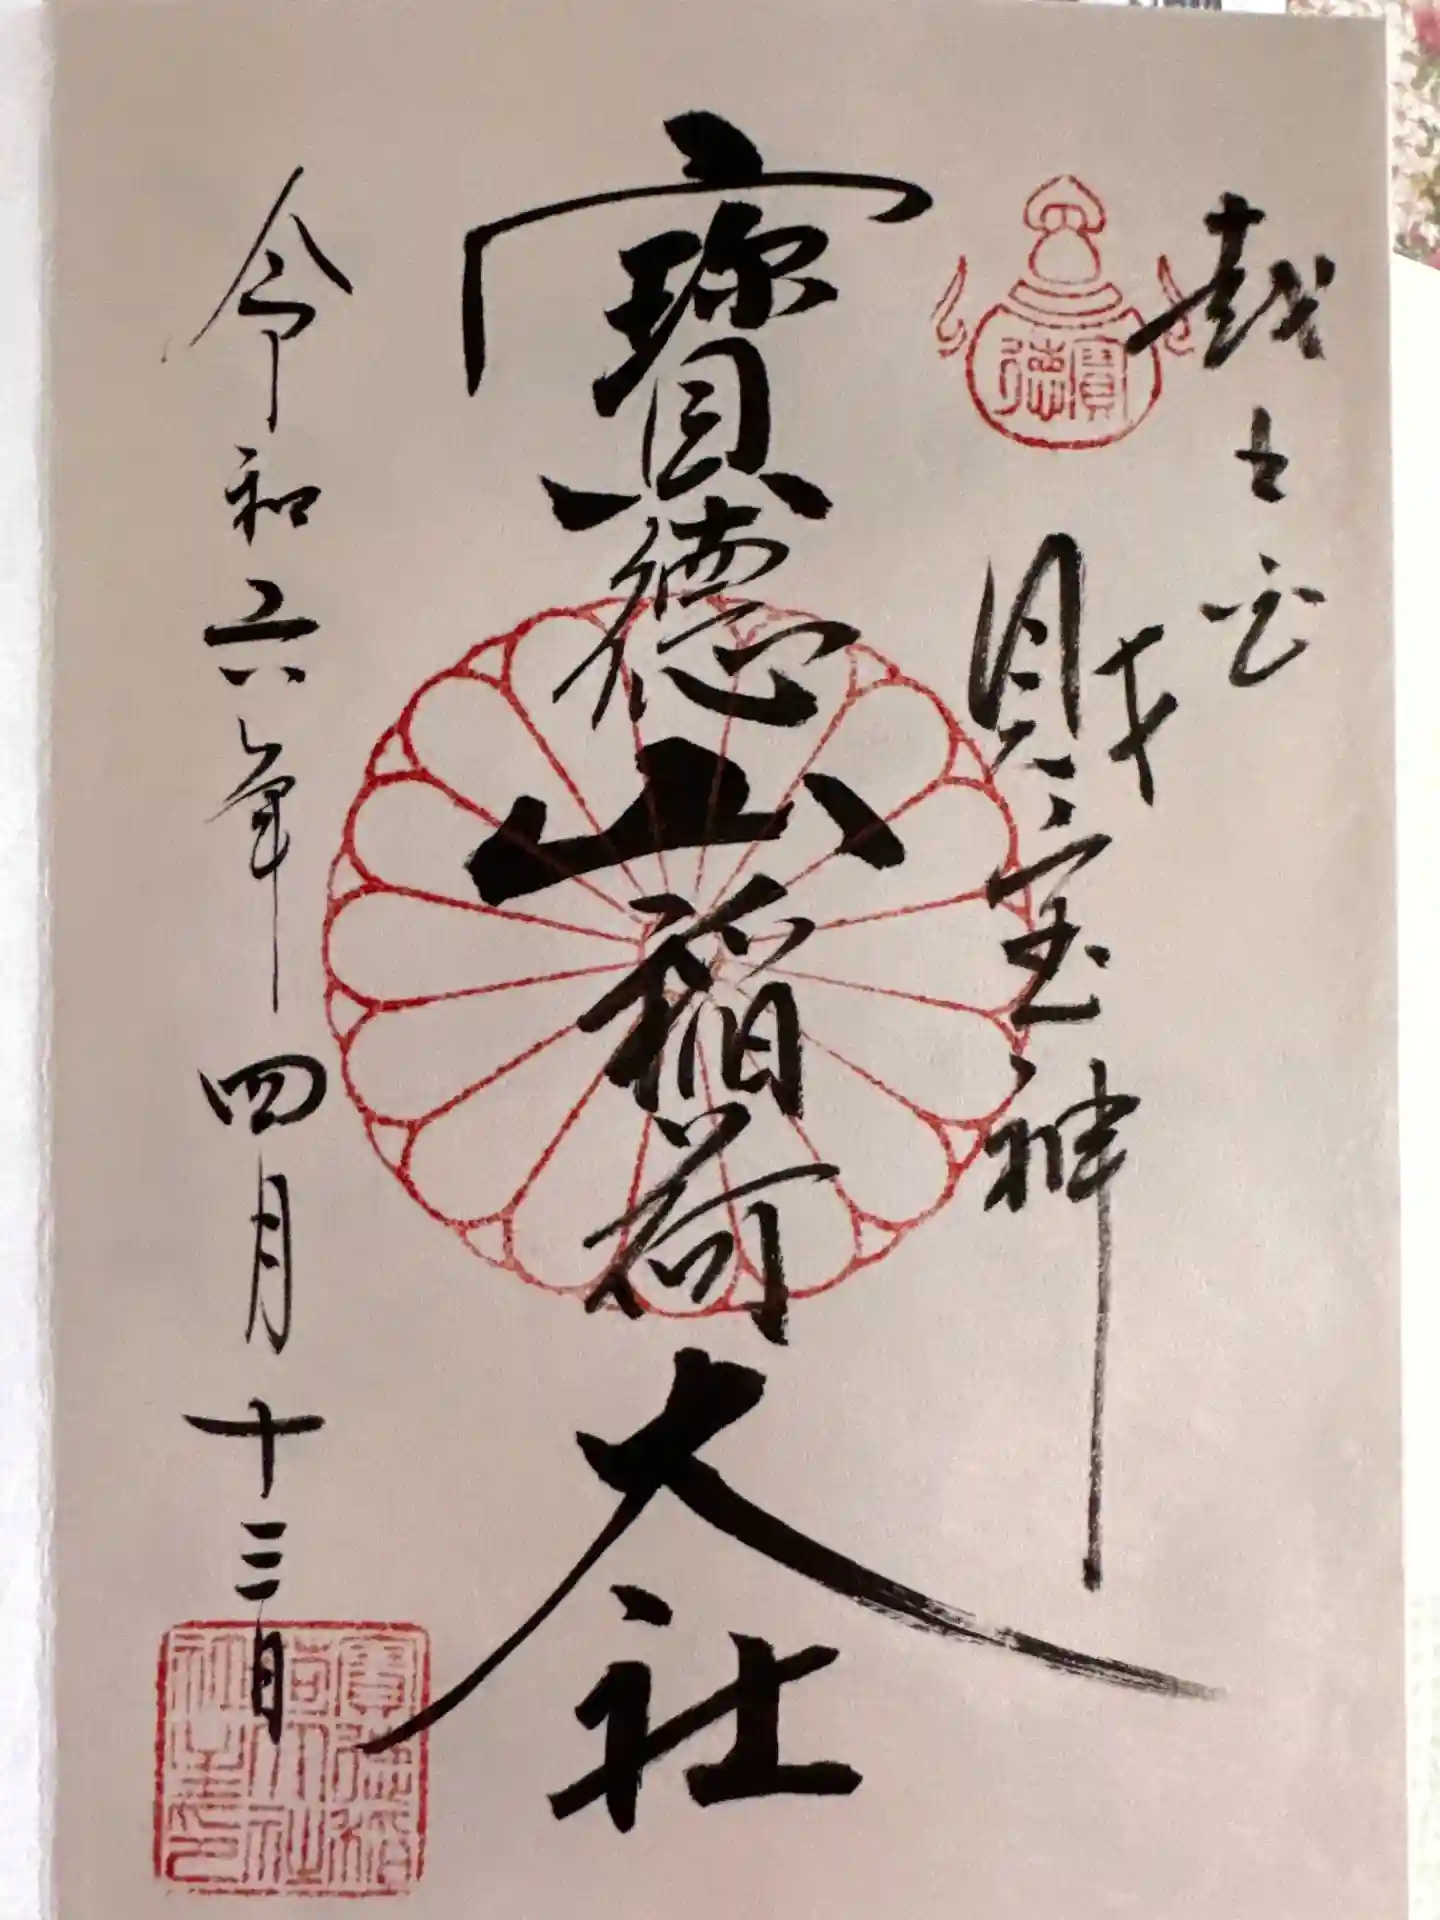 越
寶徳
財宝神
寳徳山稲荷大社
令和六年四月十三日
寶徳稲
荷大社